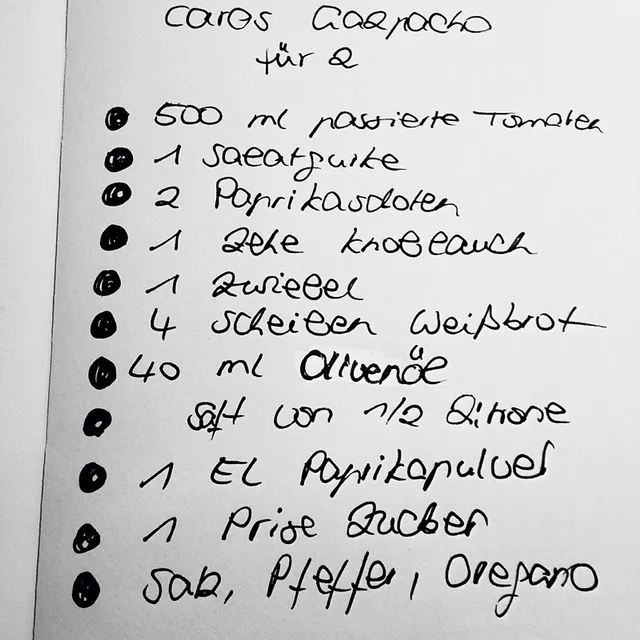 Caros Gazpacho
für 2
500 ml passierte Tomaten
1 Salatgurke
2 Paprikaschoten
1 Zehe Knoblauch
1 Zwiebel
4 Scheiben Weißbrot
40 ml Olivenöl
Saft von 1/2 Zitrone
1 EL Paprikapulver
1 Prise Zucker
Salz, Pfeffer, Oregano